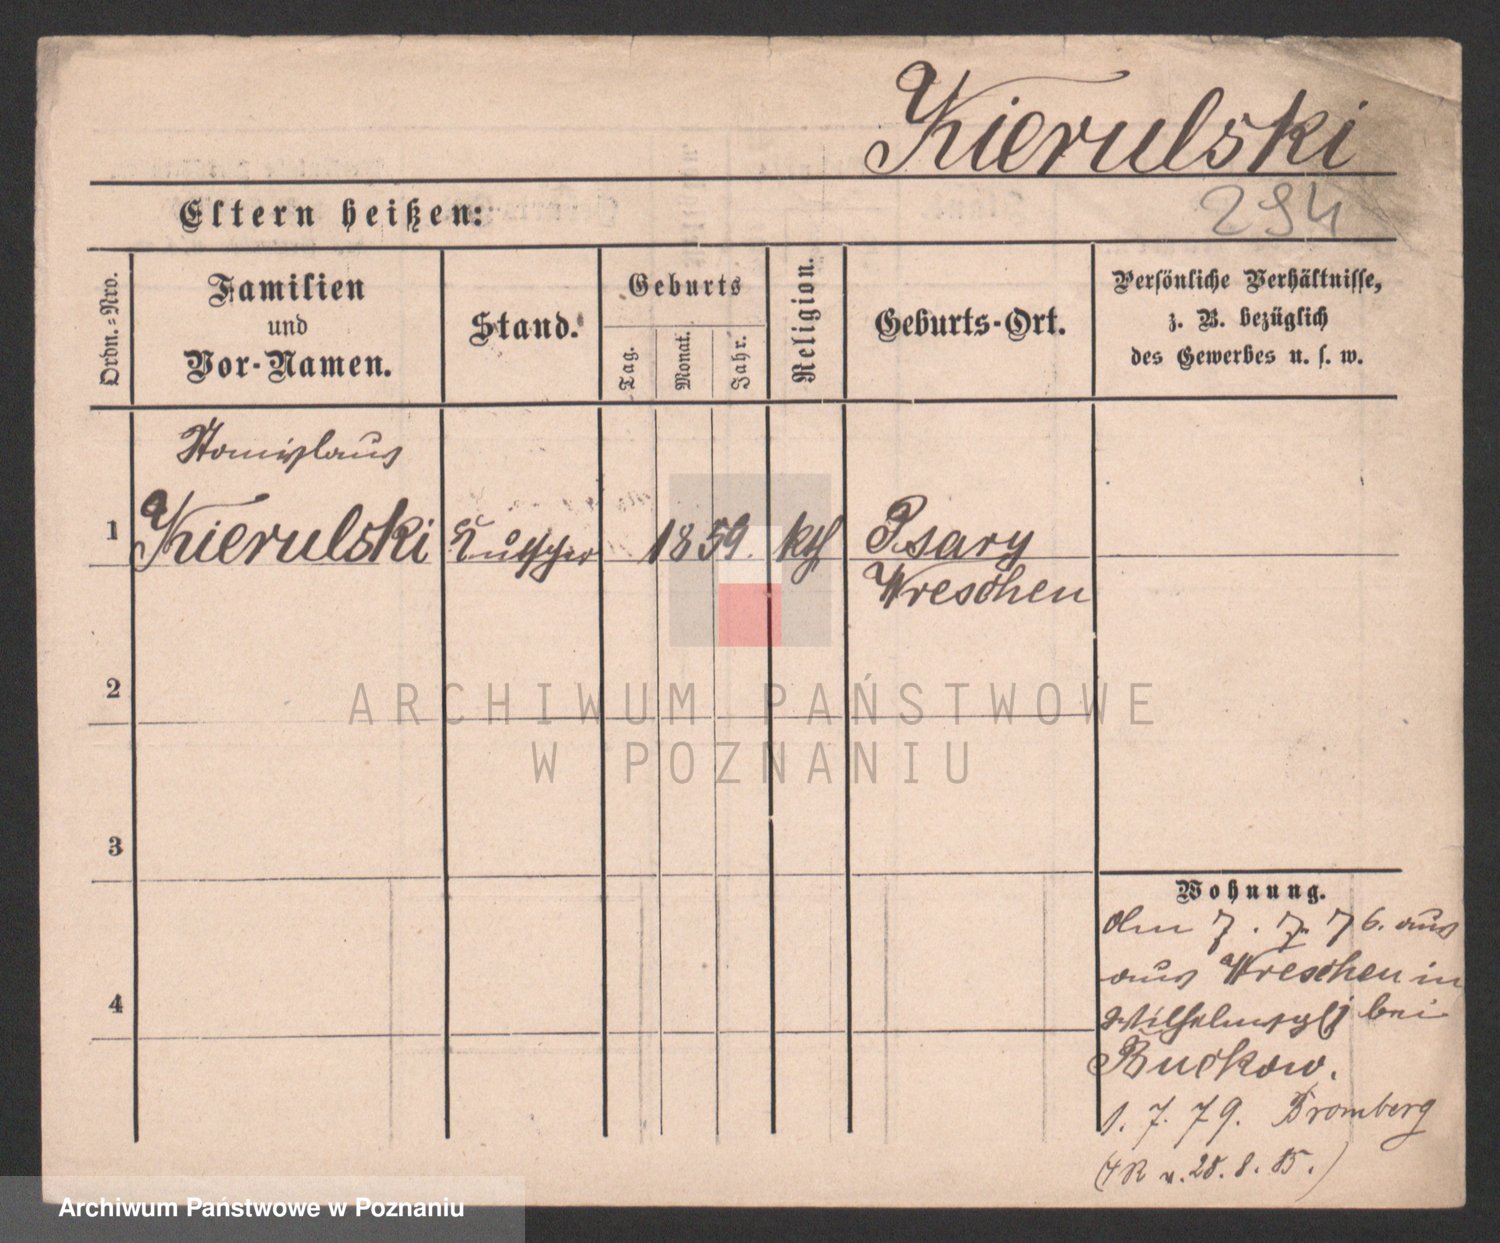 Kierulski
294
Eltern heißen:
Ordn.=Nro.
Familien
und
Vor-Namen.
Stand.
Geburts
Tag.
Monat.
Jahr.
Religion.
Geburts-Ort.
Persönliche Verhältnisse,
z. B. bezüglich
des Gewerbes u. s. w.
Stanislaus
1 Kierulski Kutscher 1859. kth Psary
Wreschen
2
ARCHIWUM PAŃSTWOWE
W POZNANIU
3
4
Wohnung.
den 7. 7. 76. aus
aus Wreschen in
bei
Buckow.
1. 7. 79. Bromberg
28. 8. 85.)
Archiwum Państwowe w Poznaniu